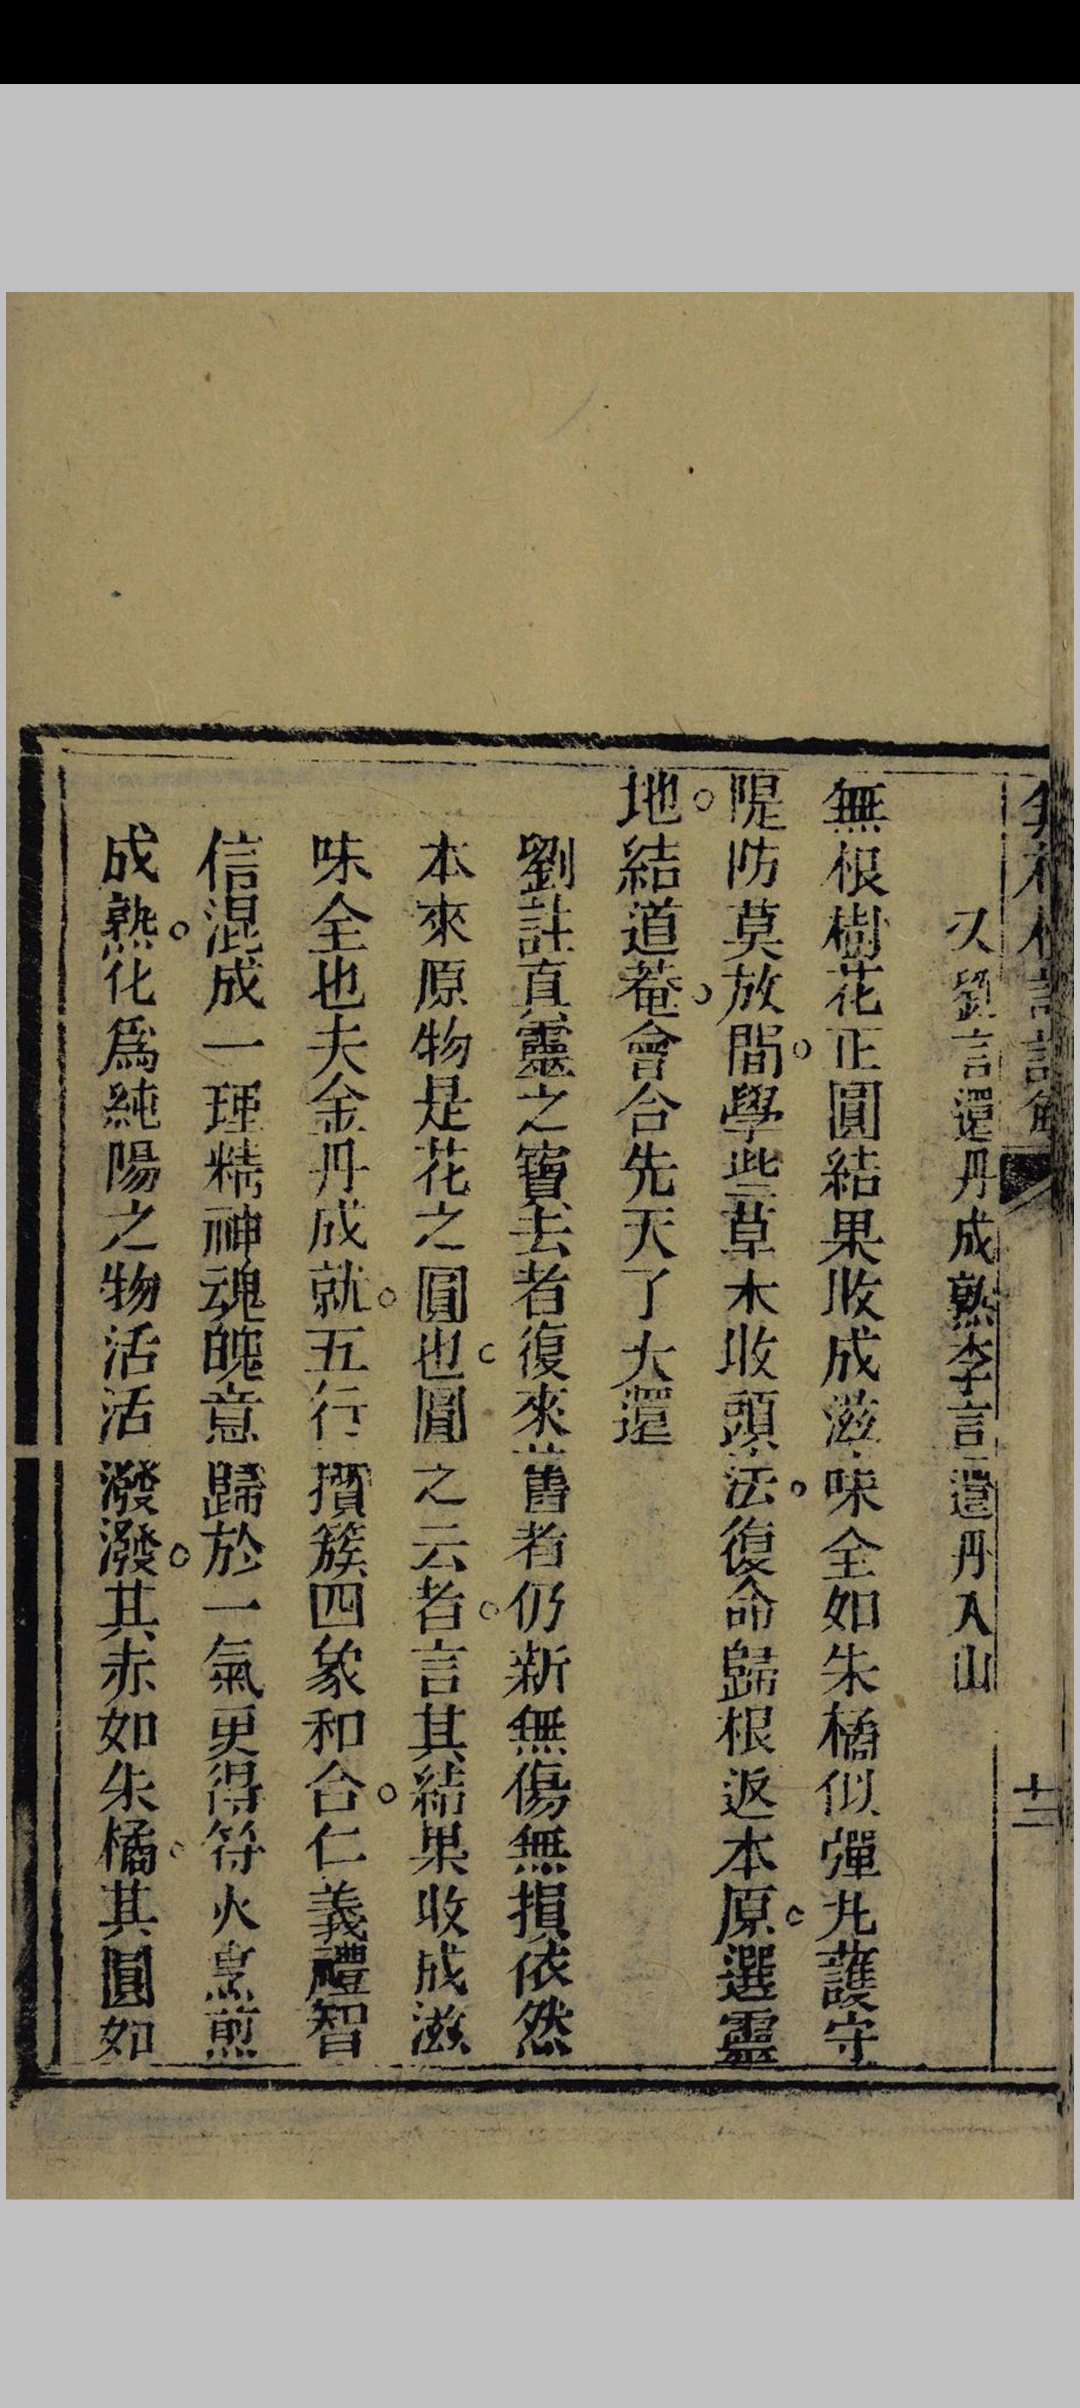 無根樹詞註解
十三
又劉言還丹成熟李言還丹入山
無根樹花正圓結果收成滋味全如朱橘似彈丸護守
隄防莫放閒學些草木收頭法復命歸根返本原選靈
地結道菴會合先天了大還
劉註真靈之寶去者復來舊者仍新無傷無損依然
本來原物是花之圓也圓之云者言其結果收成滋
味全也夫金丹成就五行攢簇四象和合仁義禮智
信混成一理精神魂魄意歸於一氣更得符火烹煎
成熟化爲純陽之物活活潑潑其赤如朱橘其圓如